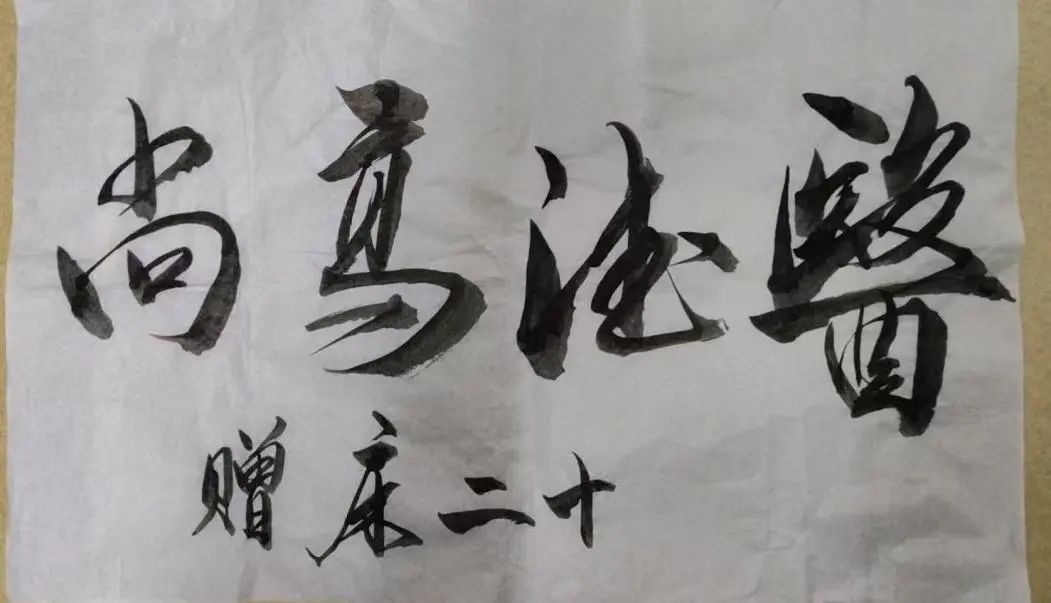 醫德高尚
十二床赠